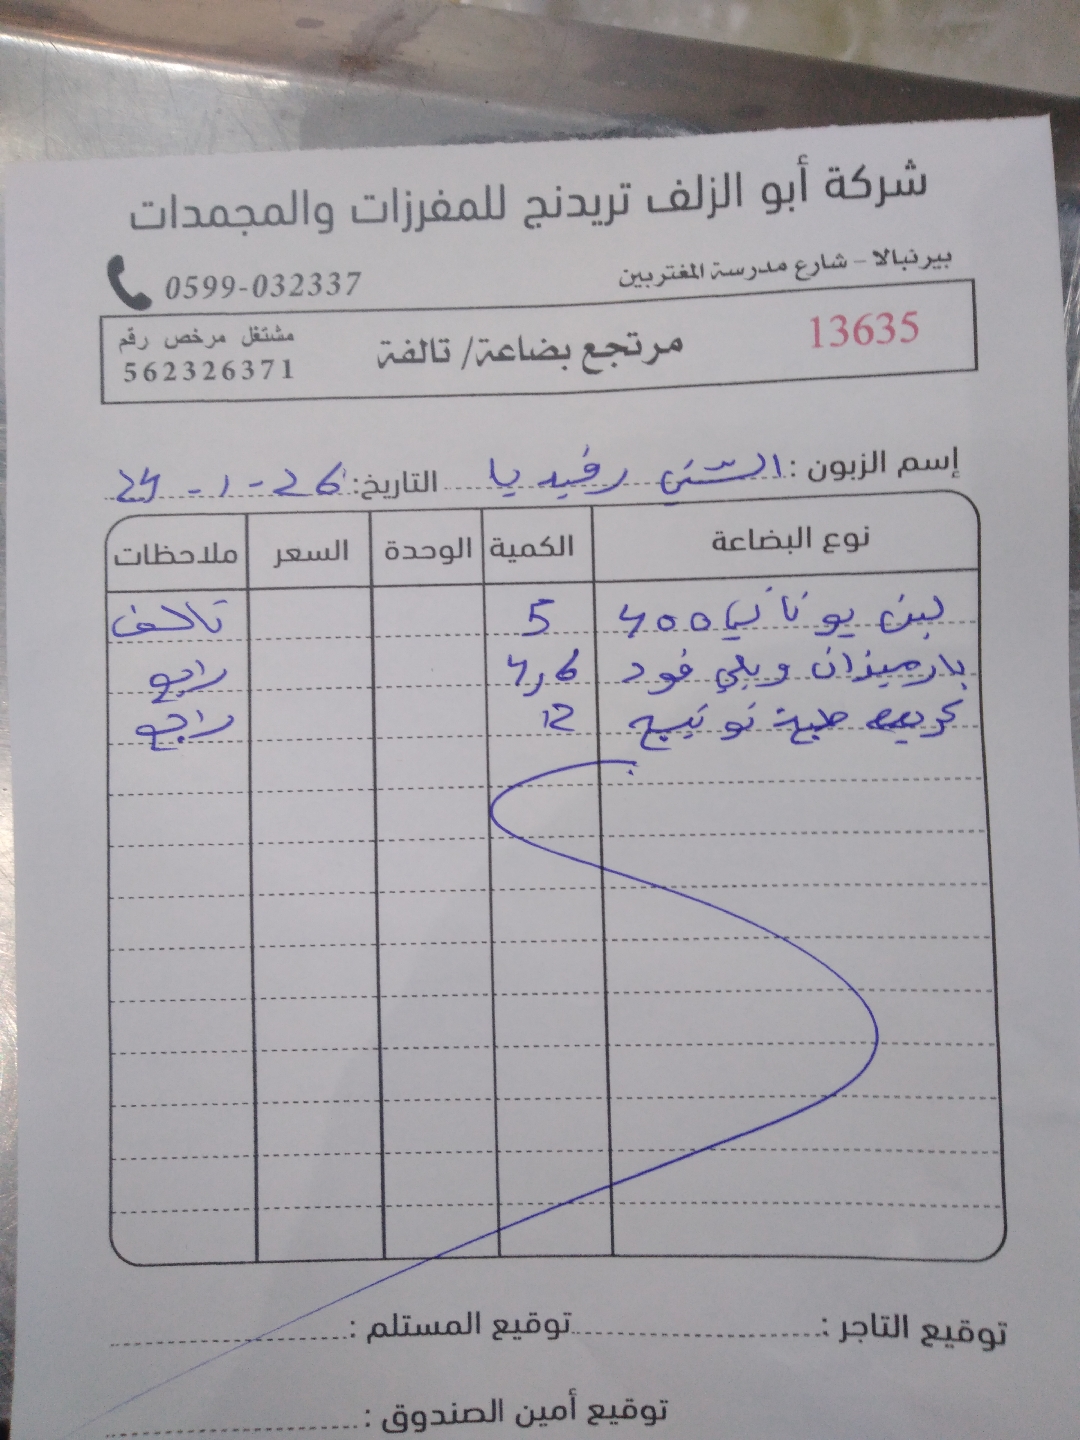 شركة أبو الزلف تريدنج للمفرزات والمجمدات
بيرنبالا - شارع مدرسة المغتربين 0599-032337
13635 مرتجع بضاعة/ تالفة مشتغل مرخص رقم
562326371
إسم الزبون: الشني رفيديا التاريخ: 24-1-26
نوع البضاعة الكمية الوحدة السعر ملاحظات
لبن يوناني 400 5 تالف
بارميزان ويلي فود 4,6 راجع
طبخ 12 راجع
توقيع التاجر: توقيع المستلم:
توقيع أمين الصندوق: